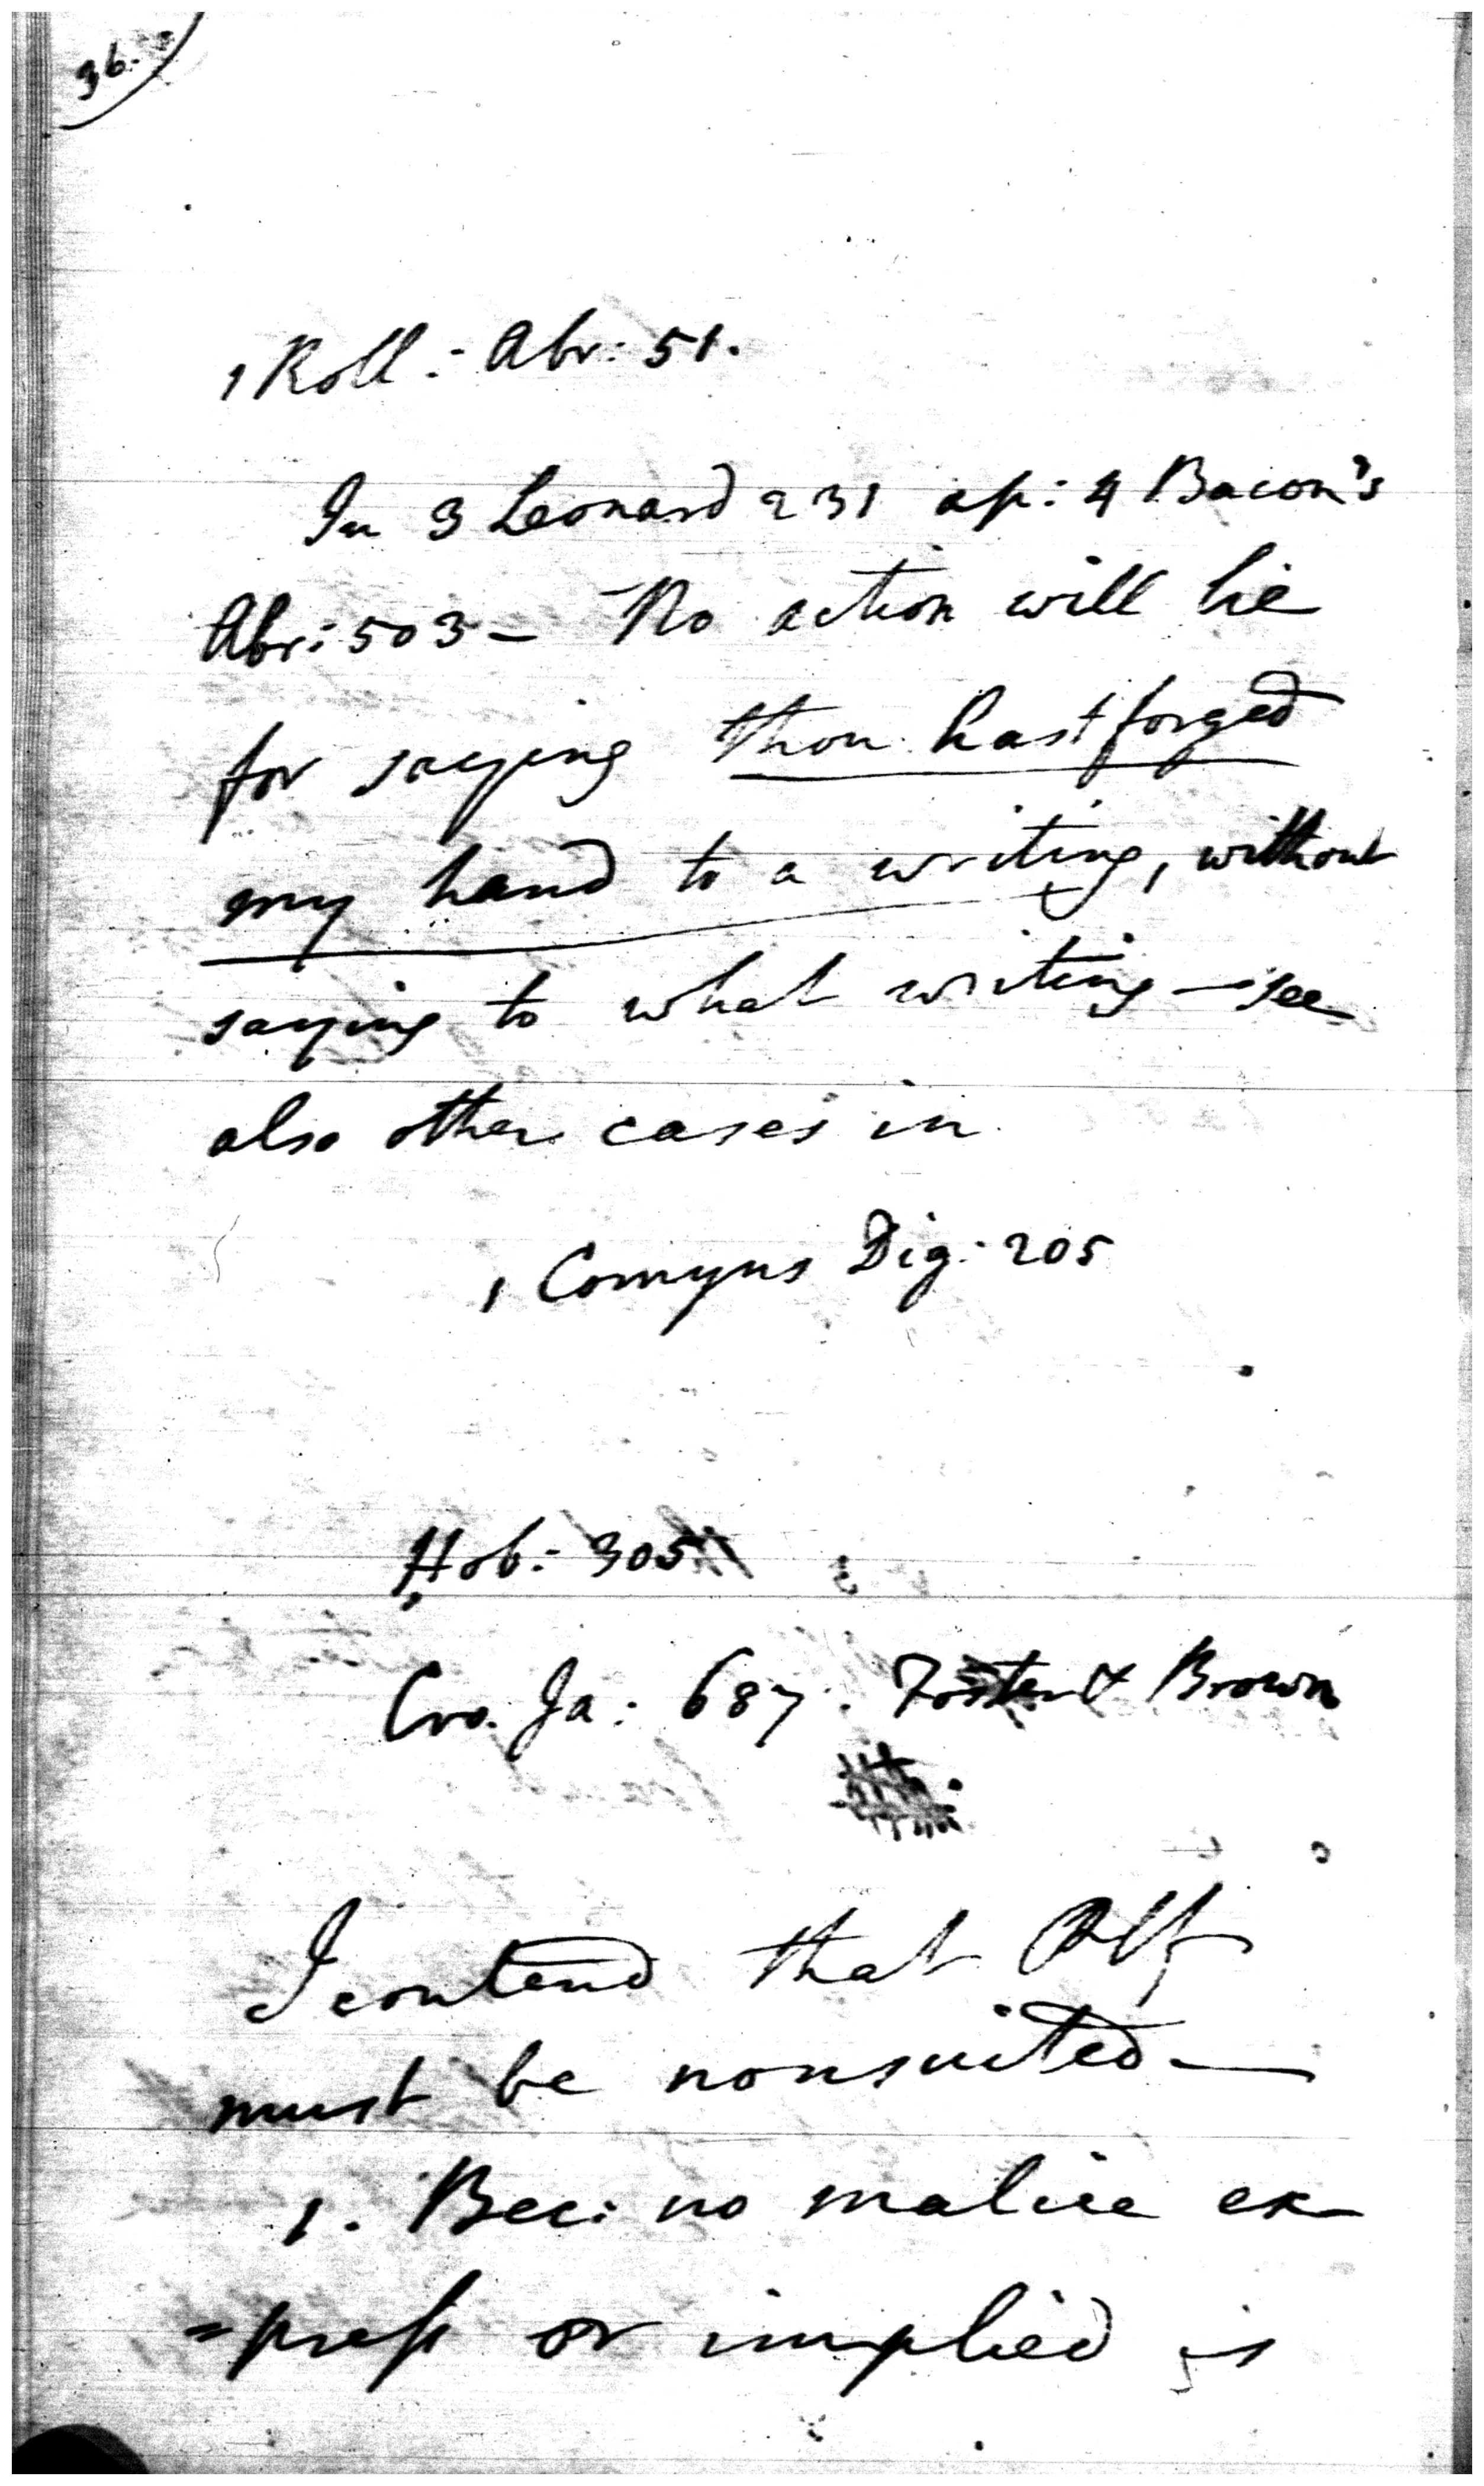 36.
1 Roll: Abr: 51.
In 3 Leonard 231 ap: 4 Bacon's
Abr: 503 - No action will lie
for saying thou hast forged
my hand to a writing, without
saying to what writing - see
also other cases in
1 Comyns Dig: 205
Hob: 305
Cro. Ja: 687. Foster & Brown
I contend that Plf
must be nonsuited -
1. Bec: no malice ex-
=press or implied is